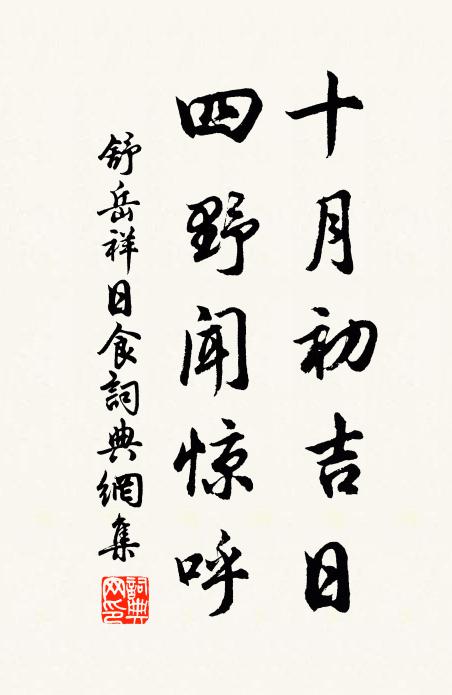 十月初吉日
四野闻惊呼
舒岳祥日食詞典網集
詞典网印